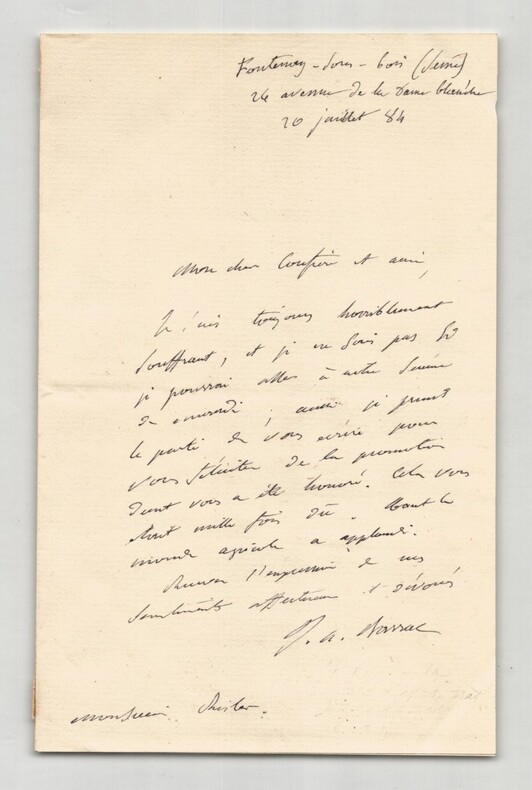 Fontenay-sous-bois (Seine)
26 avenue de la Dame blanche
20 juillet 84
Mon cher Confrère et ami,
Je suis toujours horriblement
souffrant, et je ne sais pas si
je pourrai aller à notre séance
de mercredi ; aussi je prends
le parti de vous écrire pour
vous féliciter de la promotion
dont vous a été honoré. Cela vous
était mille fois dû. Tout le
monde agricole a applaudi.
Recevez l'expression de mes
sentiments affectueux et dévoués
J. A. Barral
Monsieur Risler.